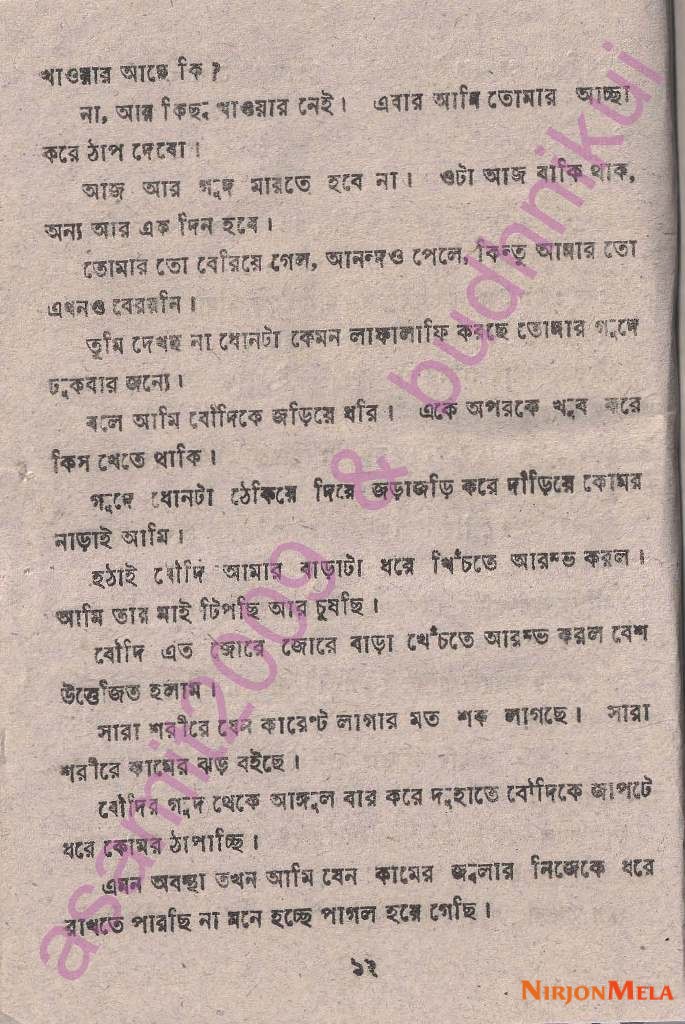 খাওয়ার আছে কি?
না, আর কিছু খাওয়ার নেই। এবার আমি তোমার আচ্ছা
করে ঠাপ দেবো।
আজ আর গুদ মারতে হবে না। ওটা আজ বাকি থাক,
অন্য আর এক দিন হবে।
তোমার তো বেরিয়ে গেল, আনন্দও পেলে, কিন্তু আমার তো
এখনও বেরয়নি।
তুমি দেখছ না ধোনটা কেমন লাফালাফি করছে তোমার গুদে
ঢুকবার জন্যে।
বলে আমি বৌদিকে জড়িয়ে ধরি। একে অপরকে খুব করে
কিস খেতে থাকি।
গুদে ধোনটা ঠেকিয়ে দিয়ে জড়াজড়ি করে দাঁড়িয়ে কোমর
নাড়াই আমি।
হঠাই বৌদি আমার বাড়াটা ধরে খিঁচতে আরম্ভ করল।
আমি তার মাই টিপছি আর চুষছি।
বৌদি এত জোরে জোরে বাড়া খেঁচতে আরম্ভ করল বেশ
উত্তেজিত হলাম।
সারা শরীরে যেন কারেন্ট লাগার মত শক লাগছে। সারা
শরীরে কামের ঝড় বইছে।
বৌদির গুদ থেকে আঙ্গুল বার করে দুহাতে বৌদিকে জাপটে
ধরে কোমর ঠাপাচ্ছি।
এমন অবস্থা তখন আমি যেন কামের জ্বলার নিজেকে ধরে
রাখতে পারছি না মনে হচ্ছে পাগল হয়ে গেছি।
১২
asamit2009 & budhnikui
NIRJONMELA